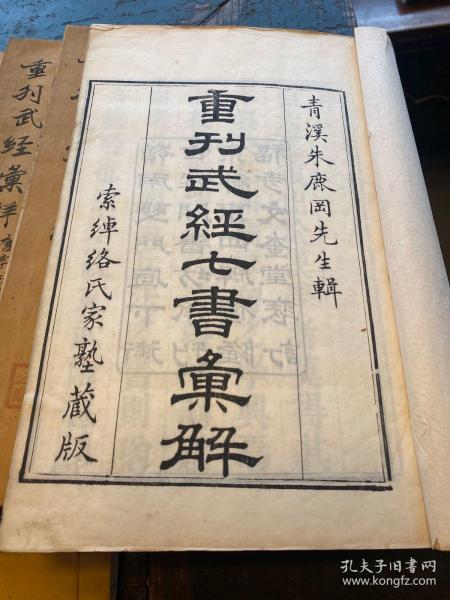 青溪朱鹿岡先生輯
重刊武經七書彙解
索綽絡氏家塾藏版
重刊武經彙解
孔夫子旧书网
www.kongfz.com